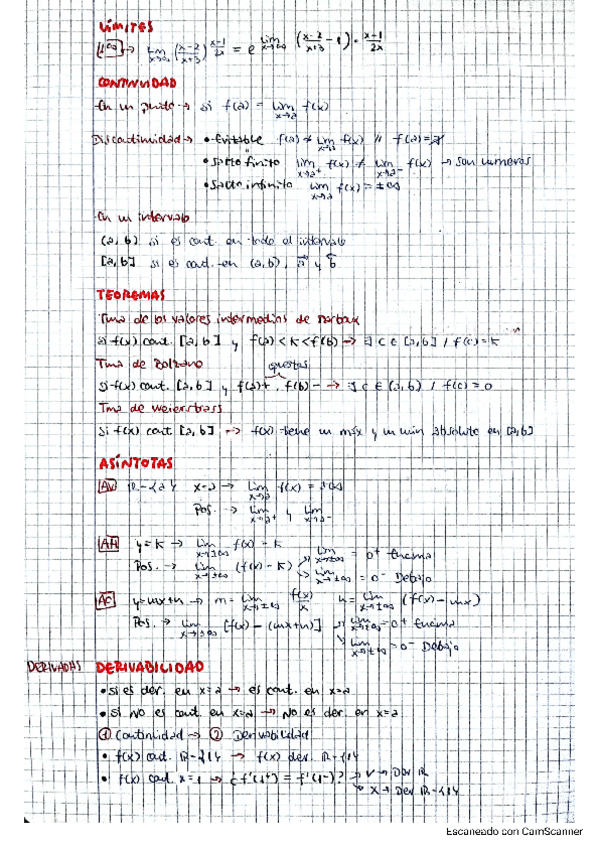 LÍMITES
1^∞ → lim x→∞ (x-2/x+3)^(x-1/2x) = e^ lim x→∞ (x-2/x+3 - 1) · x-1/2x
CONTINUIDAD
En un punto → si f(a) = lim x→a f(x)
Discontinuidad → • Evitable f(a) ≠ lim x→a f(x) // f(a)=∄
• Salto finito lim x→a+ f(x) ≠ lim x→a- f(x) → son números
• Salto infinito lim x→a f(x) = ±∞
En un intervalo
(a,b) si es cont. en todo el intervalo
[a,b] si es cont. en (a,b), a y b
TEOREMAS
Tma de los valores intermedios de Darboux
si f(x) cont. [a,b] y f(a)<K<f(b) → ∃ c ∈ [a,b] / f(c)=K
Tma de Bolzano opuestos
si f(x) cont. [a,b] y f(a)+, f(b)- → ∃ c ∈ (a,b) / f(c)=0
Tma de Weierstrass
si f(x) cont [a,b] → f(x) tiene un máx y un min absoluto en [a,b]
ASÍNTOTAS
AV R-{a} x=a → lim x→a f(x) = ±∞
Pos. → lim x→a+ y lim x→a-
AH y=K → lim x→±∞ f(x)=K
Pos. → lim x→±∞ (f(x)-K) lim x→±∞ = 0+ Encima
lim x→±∞ = 0- Debajo
AO y=mx+n → m= lim x→±∞ f(x)/x n= lim x→±∞ (f(x)-mx)
Pos. → lim x→±∞ [f(x)-(mx+n)] lim x→±∞ = 0+ Encima
lim x→±∞ = 0- Debajo
DERIVADAS DERIVABILIDAD
• Si es der. en x=a → es cont. en x=a
• Si NO es cont. en x=a → NO es der. en x=a
① Continuidad → ② Derivabilidad
• f(x) cont. R-{1} → f(x) der. R-{1}
• f(x) cont. x=1 → ¿f'(1+) = f'(1-)? → V → Der R
→ X → Der R-{1}
Escaneado con CamScanner